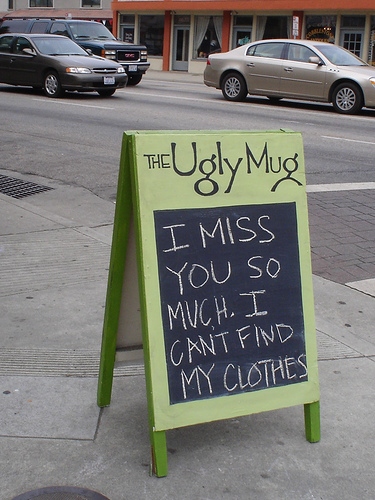 THE Ugly Mug
I MISS
YOU SO
MUCH. I
CAN'T FIND
MY CLOTHES